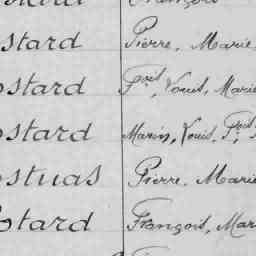 François
ostard Pierre, Marie
ostard Fçois, Louis, Marie
ostard Marin, Louis, Fçois,
ostuas Pierre, Marie
otard François, Mar